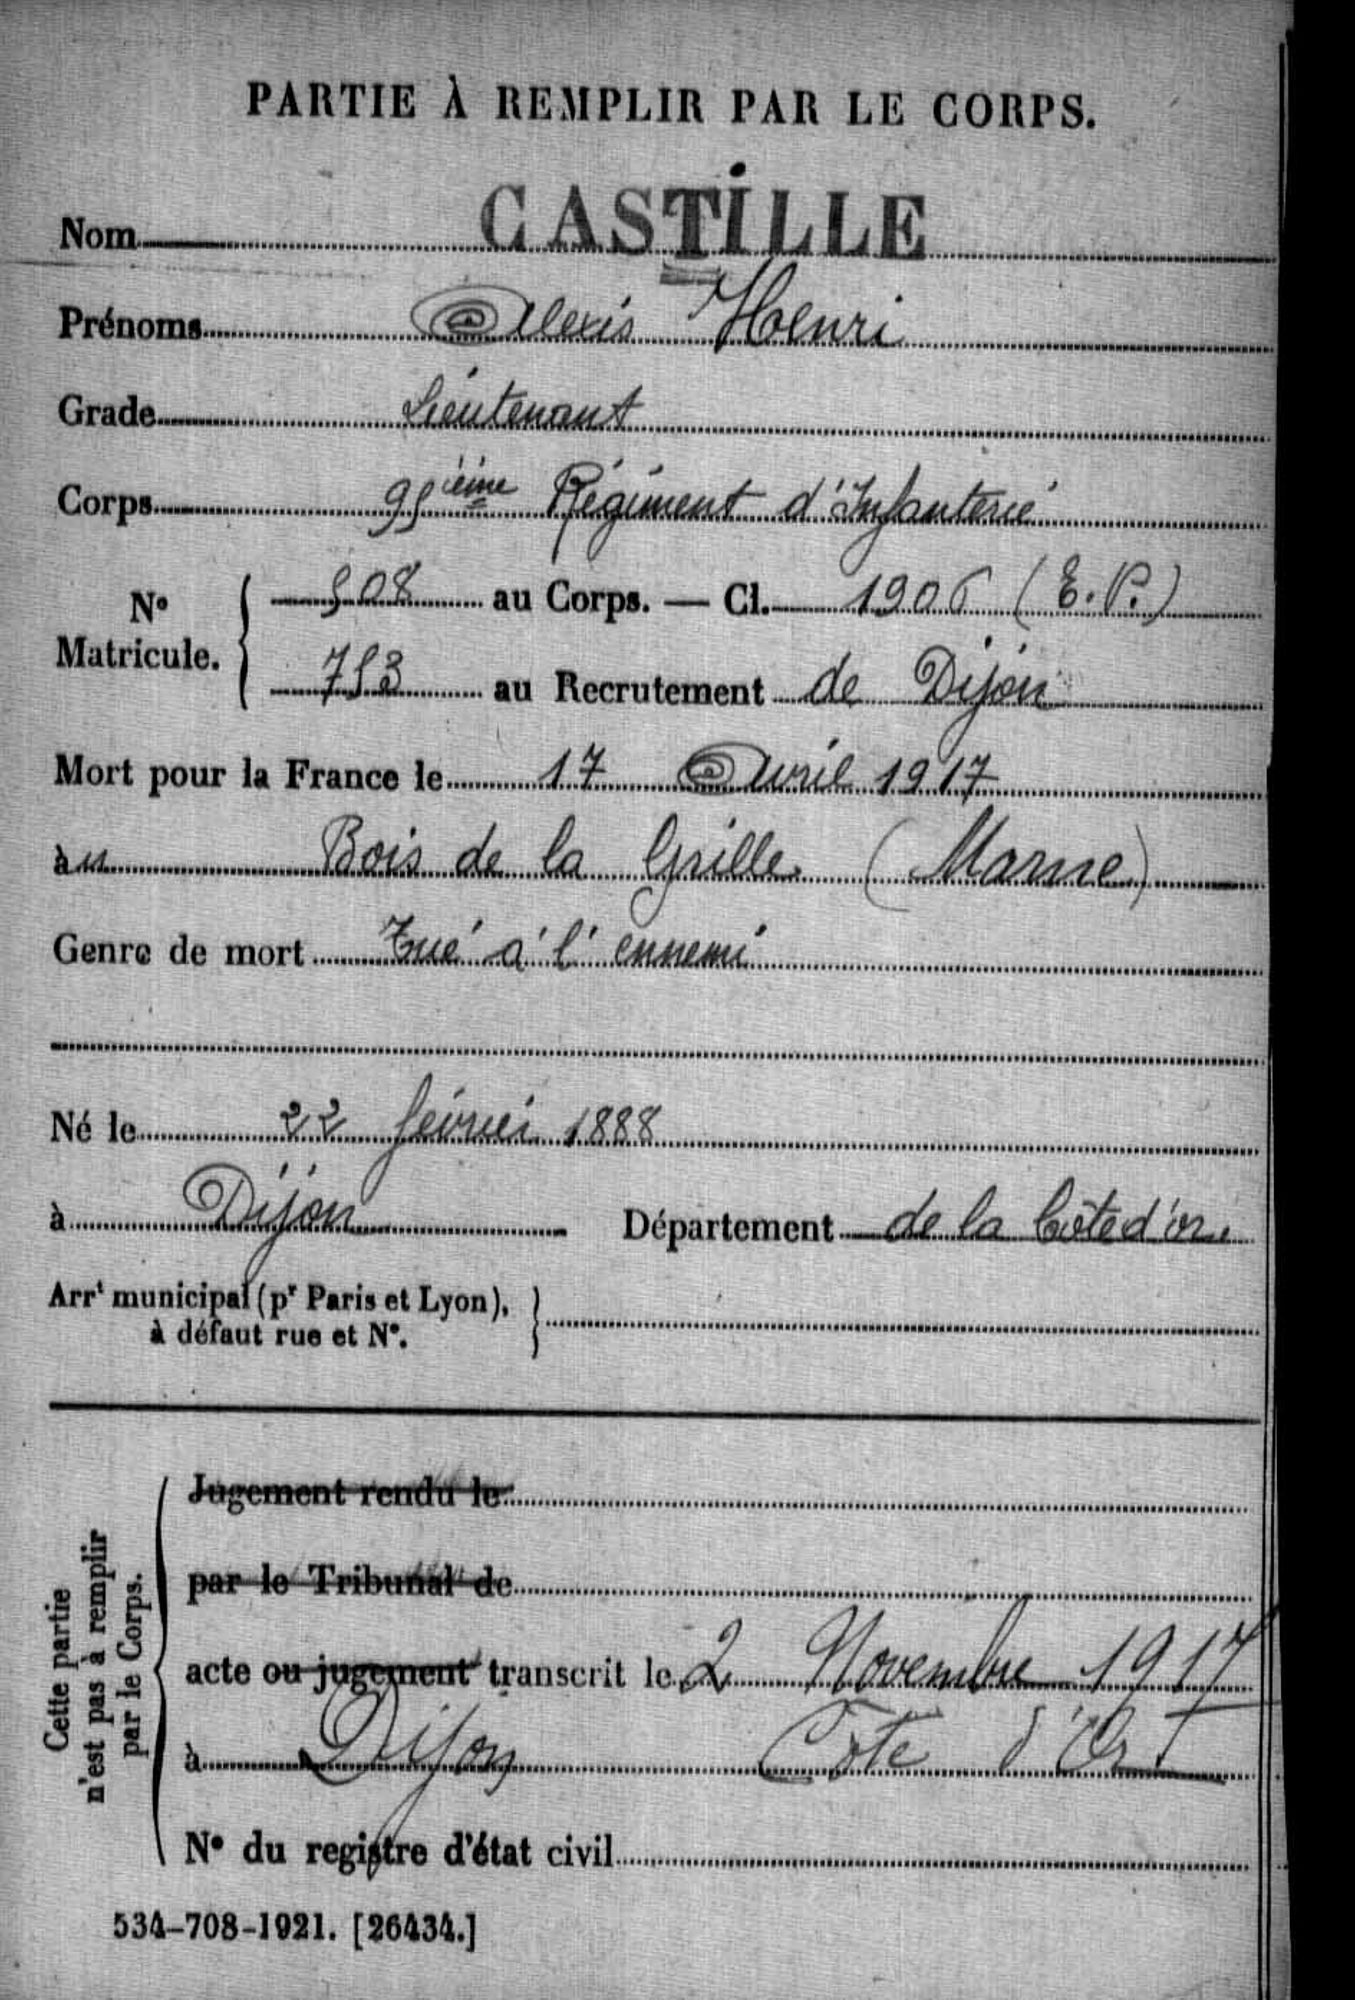 PARTIE À REMPLIR PAR LE CORPS.
Nom CASTILLE
Prénoms Alexis Henri
Grade Lieutenant
Corps 95ième Régiment d'Infanterie
N° Matricule. { 508 au Corps. — Cl. 1906 (E.V.)
753 au Recrutement de Dijon
Mort pour la France le 17 Avril 1917
au Bois de la Grille (Marne)
Genre de mort Tué à l'ennemi
Né le 22 février 1888
à Dijon Département de la Côte d'or
Arrt municipal (pr Paris et Lyon), }
à défaut rue et N°.
Cette partie
n'est pas à remplir
par le Corps.
Jugement rendu le
par le Tribunal de
acte ou jugement transcrit le 2 Novembre 1917
à Dijon Côte d'Or
N° du registre d'état civil
534-708-1921. [26434.]